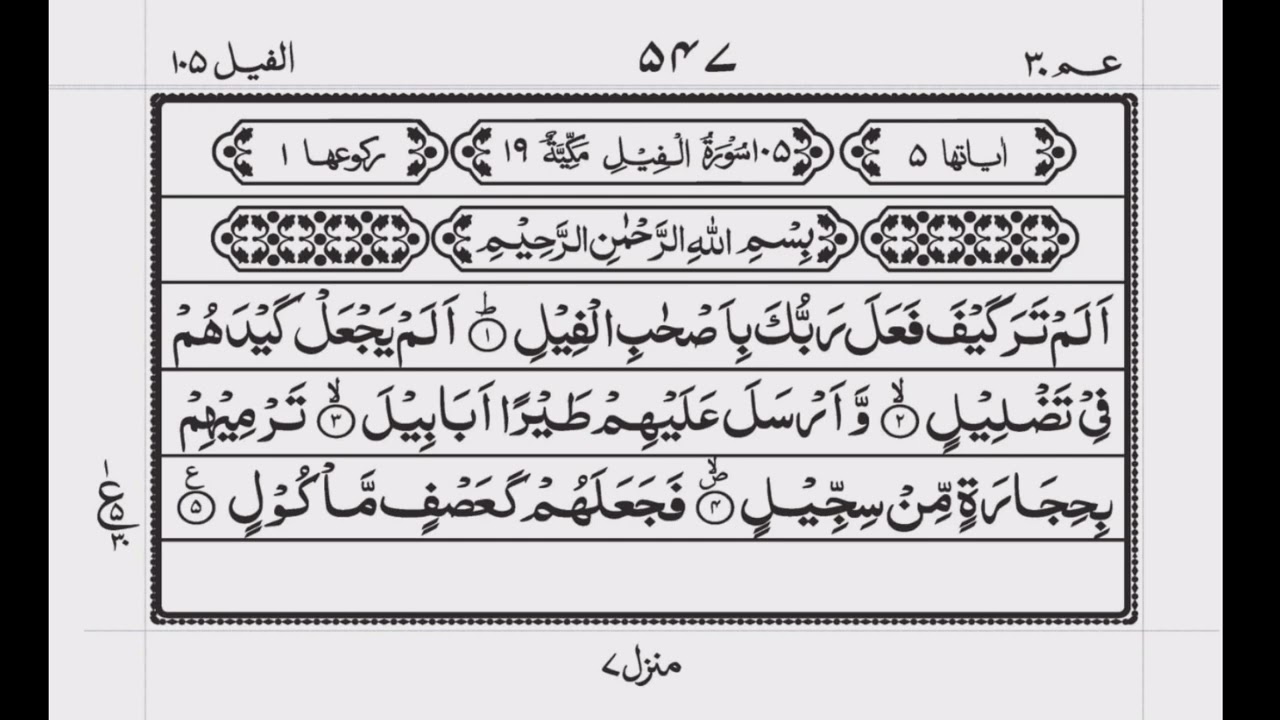 عم ۳۰ ۵۴۷ الفیل ۱۰۵
اٰیاتها ۵ ۱۰۵ سُوْرَةُ الْفِیْلِ مَكِّیَّةٌ ۱۹ ركوعها ۱
بِسْمِ اللّٰهِ الرَّحْمٰنِ الرَّحِیْمِ
اَلَمْ تَرَ كَیْفَ فَعَلَ رَبُّكَ بِاَصْحٰبِ الْفِیْلِ ؕ﴿۱﴾ اَلَمْ یَجْعَلْ كَیْدَهُمْ
فِیْ تَضْلِیْلٍ ۙ﴿۲﴾ وَّ اَرْسَلَ عَلَیْهِمْ طَیْرًا اَبَابِیْلَ ۙ﴿۳﴾ تَرْمِیْهِمْ
بِحِجَارَةٍ مِّنْ سِجِّیْلٍ ۪ۙ﴿۴﴾ فَجَعَلَهُمْ كَعَصْفٍ مَّاْكُوْلٍ ﴿۵﴾ ع
۱
ع ۵
۳۰
منزل ۷